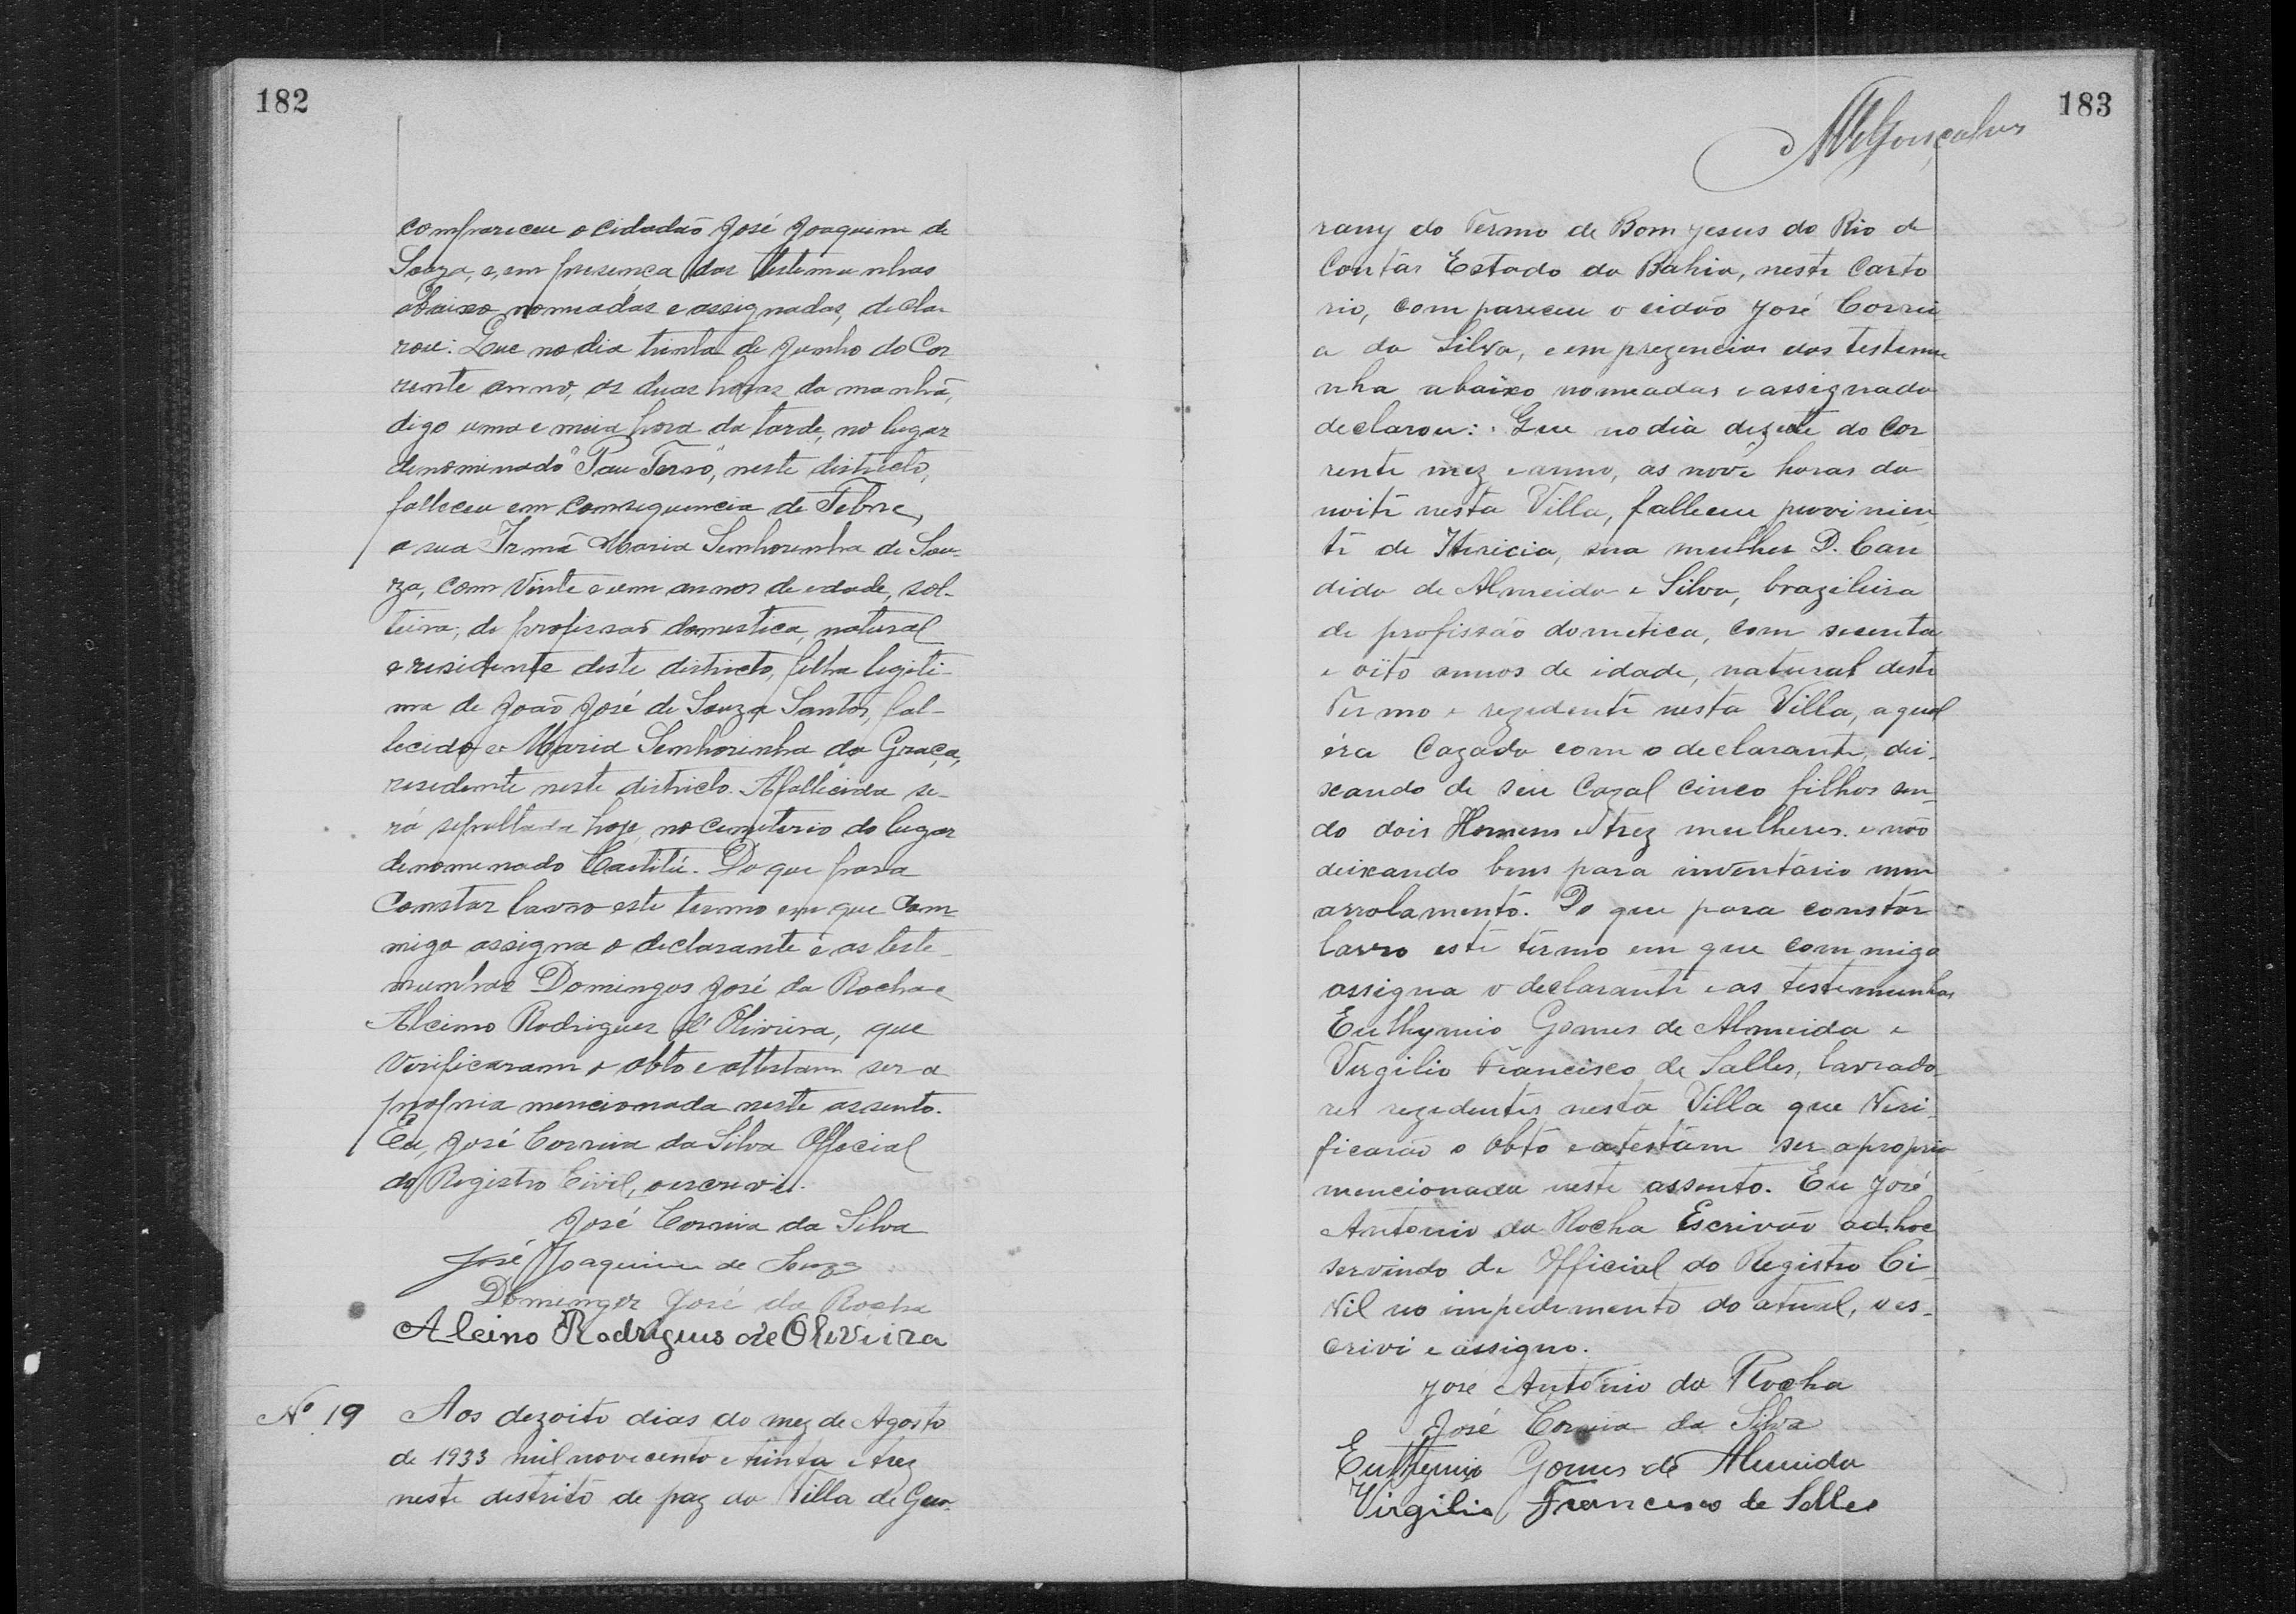 182
compareceu o cidadão José Joaquim de
Souza, e, em presença das testemunhas
abaixo nomeadas e assignadas, decla-
rou: Que no dia trinta de Junho do Cor
rente anno, as duas horas da manhã,
digo uma e meia hora da tarde, no lugar
denominado "Pau Ferro", neste districto,
falleceu em consequencia de Febre,
a sua Irmã Maria Senhorinha de Sou-
za, com vinte e um annos de edade, sol-
teira, de profissão domestica, natural
e residente deste districto, filha legiti-
ma de João José de Souza Santos, fal-
lecido e Maria Senhorinha da Graça,
residente neste districto. A fallecida se-
rá sepultada hoje, no cemeterio do lugar
denomenado Caititú. Do que para
Constar lavro este termo em que Com-
migo assigna o declarante e as teste-
munhas Domingos José da Rocha e
Alcino Rodrigues d'Oliveira, que
verificaram o obto e attestam ser a
propria mencionada neste assento.
Eu, José Correia da Silva Official
do Registro Civil, o escrevi.
José Correia da Silva
José Joaquim de Souza
Domingos José da Rocha
Alcino Rodrigues de Oliveira
Nº 19 Aos dezoito dias do mez de Agosto
de 1933 mil novecento e trinta e trez
neste destrito de paz da Villa de Gua-
183
Gonçalves
rany do Termo de Bom Jesus do Rio de
Contas Estado da Bahia, neste Carto
rio, compareceu o cidão José Correi
a da Silva, e em prezencia das testemu
nha abaixo nomeadas e assignada
declarou: Que no dia dezete do Cor
rente mez e anno, as nove horas da
noite nesta Villa, falleceu provinien
te de Itiricia, sua mulher D. Can
dida de Almeida e Silva, brazileira
de profissão dometica, com secenta
e oito annos de idade, natural deste
Termo e rezidente nesta Villa, a qual
éra Cazada com o declarante, dei-
xando de seu Cazal cinco filhos sen-
do dois Homens e trez mulheres. e não
deixando bens para inventário nem
arrolamento. Do que para constar
lavro este termo em que commigo
assigna o declarante e as testemunhas
Euthymio Gomes de Almeida e
Virgilio Francisco de Salles, lavrado-
res rezidentes nesta Villa que Veri-
ficarão o Obto e atestam ser a propria
mencionada neste assento. Eu José
Antonio da Rocha Escrivão ad-hoc
servindo de Official do Registro Ci-
vil no impedimento do atual, o es-
crivi e assigno.
José Antonio da Rocha
José Correia da Silva
Euthymio Gomes de Almeida
Virgilio Francisco de Salles